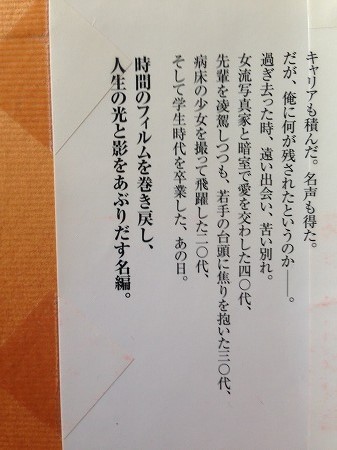 キャリアも積んだ。名声も得た。
だが、俺に何が残されたというのか――。
過ぎ去った時、遠い出会い、苦い別れ。
女流写真家と暗室で愛を交わした四〇代、
先輩を凌駕しつつも、若手の台頭に焦りを抱いた三〇代、
病床の少女を撮って飛躍した二〇代、
そして学生時代を卒業した、あの日。
時間のフィルムを巻き戻し、
人生の光と影をあぶりだす名編。